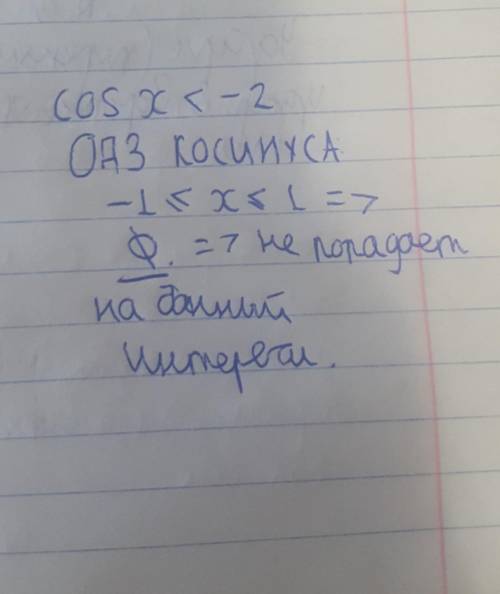 cos x < -2
ОДЗ косинуса
-1 ≤ x ≤ 1 =>
Ø. => не попадает
на данный
интервал.